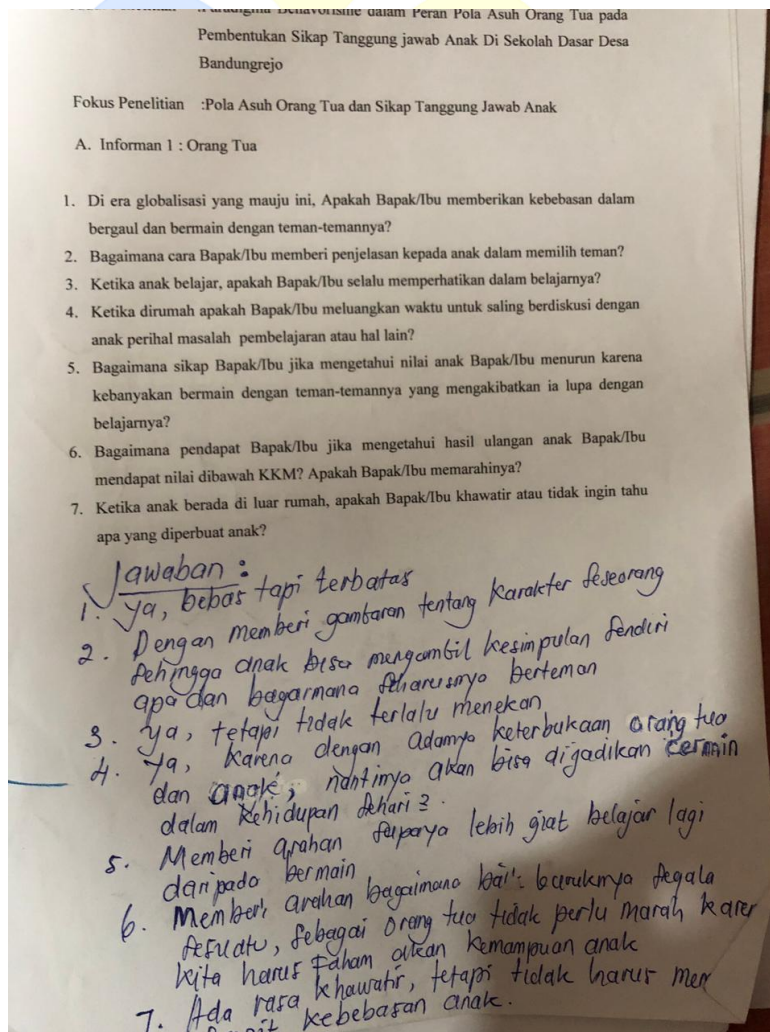 Behaviorisme dalam Peran Pola Asuh Orang Tua pada
Pembentukan Sikap Tanggung jawab Anak Di Sekolah Dasar Desa
Bandungrejo
Fokus Penelitian :Pola Asuh Orang Tua dan Sikap Tanggung Jawab Anak
A. Informan 1 : Orang Tua
1. Di era globalisasi yang mauju ini, Apakah Bapak/Ibu memberikan kebebasan dalam
bergaul dan bermain dengan teman-temannya?
2. Bagaimana cara Bapak/Ibu memberi penjelasan kepada anak dalam memilih teman?
3. Ketika anak belajar, apakah Bapak/Ibu selalu memperhatikan dalam belajarnya?
4. Ketika dirumah apakah Bapak/Ibu meluangkan waktu untuk saling berdiskusi dengan
anak perihal masalah pembelajaran atau hal lain?
5. Bagaimana sikap Bapak/Ibu jika mengetahui nilai anak Bapak/Ibu menurun karena
kebanyakan bermain dengan teman-temannya yang mengakibatkan ia lupa dengan
belajarnya?
6. Bagaimana pendapat Bapak/Ibu jika mengetahui hasil ulangan anak Bapak/Ibu
mendapat nilai dibawah KKM? Apakah Bapak/Ibu memarahinya?
7. Ketika anak berada di luar rumah, apakah Bapak/Ibu khawatir atau tidak ingin tahu
apa yang diperbuat anak?
Jawaban :
1. Ya, bebas tapi terbatas
2. Dengan memberi gambaran tentang karakter seseorang
sehingga anak bisa mengambil kesimpulan sendiri
apa dan bagaimana seharusnya berteman
3. Ya, tetapi tidak terlalu menekan
4. Ya, karena dengan adanya keterbukaan orang tua
dan anak, nantinya akan bisa dijadikan cermin
dalam kehidupan sehari2.
5. Memberi arahan supaya lebih giat belajar lagi
daripada bermain
6. Memberi arahan bagaimana baik buruknya segala
sesuatu, sebagai orang tua tidak perlu marah karen
kita harus faham akan kemampuan anak
7. Ada rasa khawatir, tetapi tidak harus mem
kebebasan anak.